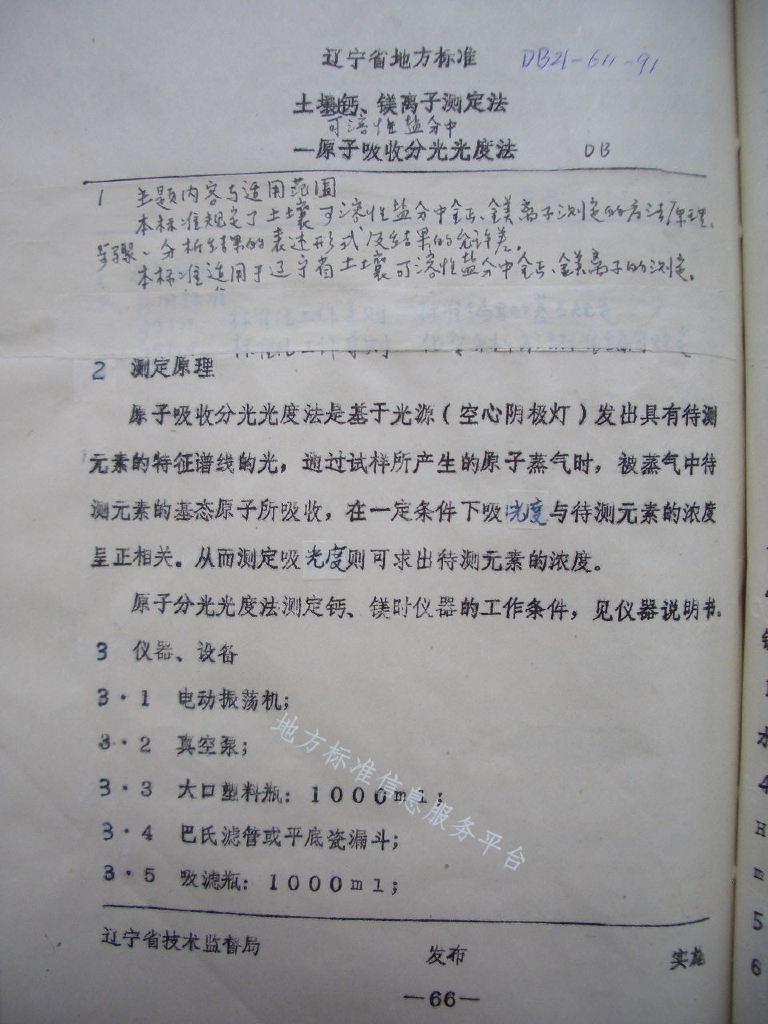 辽宁省地方标准 DB21-611-91
土壤钙、镁离子测定法
可溶性盐分中
—原子吸收分光光度法 DB
1 主题内容与适用范围
本标准规定了土壤可溶性盐分中钙、镁离子测定的方法原理、
步骤、分析结果的表述形式及结果的允许差。
本标准适用于辽宁省土壤可溶性盐分中钙、镁离子的测定。
2 测定原理
原子吸收分光光度法是基于光源(空心阴极灯)发出具有待测
元素的特征谱线的光,通过试样所产生的原子蒸气时,被蒸气中待
测元素的基态原子所吸收,在一定条件下吸光度与待测元素的浓度
呈正相关。从而测定吸光度则可求出待测元素的浓度。
原子分光光度法测定钙、镁时仪器的工作条件,见仪器说明书。
3 仪器、设备
3·1 电动振荡机;
3·2 真空泵;
3·3 大口塑料瓶:1000ml;
3·4 巴氏滤管或平底瓷漏斗;
3·5 吸滤瓶:1000ml;
地方标准信息服务平台
辽宁省技术监督局 发布 实施
—66—